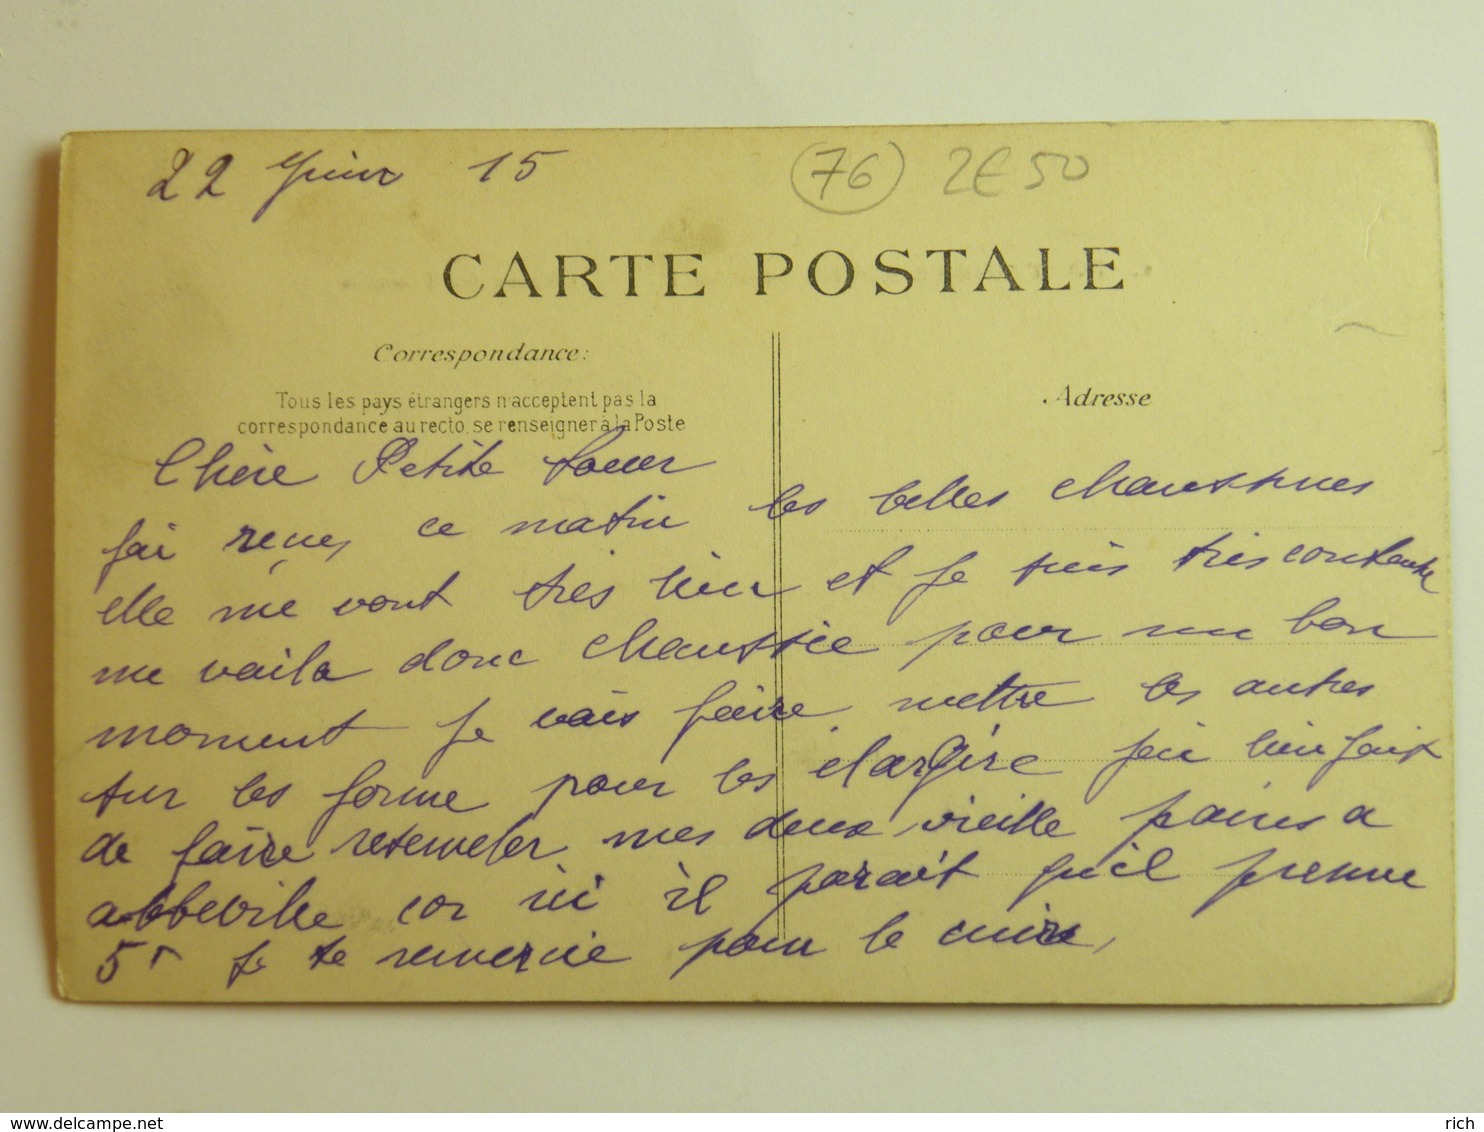 22 Juin 15
76 2€50
CARTE POSTALE
Correspondance:
Adresse
Tous les pays étrangers n'acceptent pas la
correspondance au recto, se renseigner à la Poste
Chère Petite Soeur
j'ai reçue, ce matin les belles chaussures
elle me vont très bien et je suis très contente
me voila donc chaussée pour un bon
moment je vais faire mettre les autres
sur les forme pour les élargire j'ai bien fait
de faire resemeler mes deux vieille paires a
abbeville car ici il parait qu'il prenne
5f je te remercie pour le cuire,
www.delcampe.net
rich